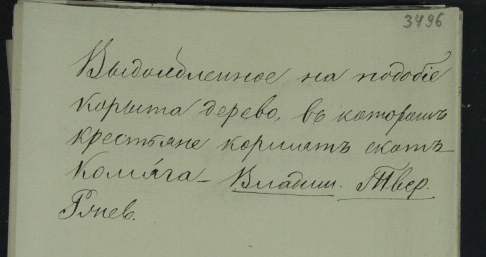 3496
Выдолбленное на подобіе
корыта дерево, въ которомъ
крестьяне кормятъ скотъ –
Комя́га – Владим. Твер.